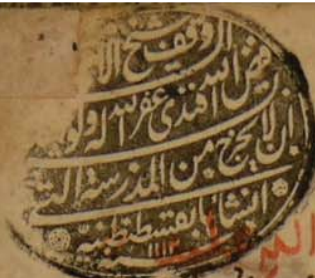 وقف شيخ الا
فيض الله افندى غفر الله له ولو
ان لا يخرج من المدرسة التى
انشاها بقسطنطنيه
سنه ١١١٢